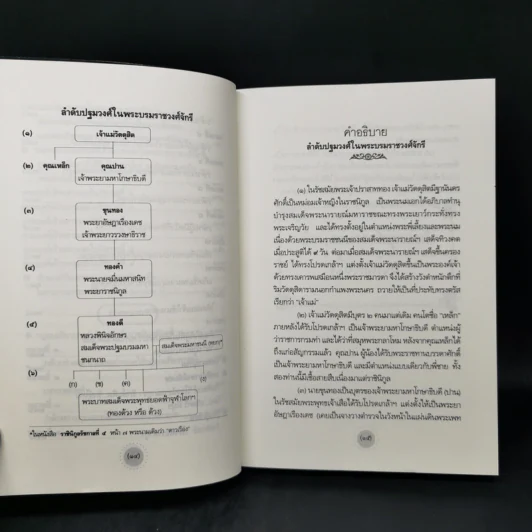 ลำดับปฐมวงศ์ในพระบรมราชวงศ์จักรี
(๑) เจ้าแม่วัดดุสิต
(๒) คุณเหล็ก คุณปาน
เจ้าพระยามหาโกษาธิบดี
(๓) ขุนทอง
พระยาอัษฎาเรืองเดช
เจ้าพระยาวรวงษาธิราช
(๔) ทองคำ
พระยาราชนิกูล
(๕) ทองดี
หลวงพินิจอักษร
สมเด็จพระปฐมบรมมหา
ชนกนาถ
(๖)
พระบาทสมเด็จพระพุทธยอดฟ้าจุฬาโลกฯ
(ทองด้วง หรือ ด้วง)
*ในหนังสือ ราชินิกูลรัชกาลที่ ๕ หน้า ๗ พระนามเดิมว่า "ดาวเรือง"
คำอธิบาย
ลำดับปฐมวงศ์ในพระบรมราชวงศ์จักรี
(๑) ในรัชสมัยพระเจ้าปราสาททอง เจ้าแม่วัดดุสิตมีฐานันดร
ศักดิ์เป็นหม่อมเจ้าหญิงในราชนิกูล เป็นพระนมเอกได้อภิบาลทำนุ
บำรุงสมเด็จพระนารายณ์มหาราชขณะทรงพระเยาว์กระทั่งทรง
พระเจริญวัย และได้ทรงตั้งอยู่ในตำแหน่งพระพี่เลี้ยงและพระนม
เนื่องด้วยพระบรมราชชนนีของสมเด็จพระนารายณ์ฯ เสด็จทิวงคต
เมื่อประสูติได้ ๙ วัน ต่อมาเมื่อสมเด็จพระนารายณ์ฯ เสด็จขึ้นครอง
ราชย์ ได้ทรงโปรดเกล้าฯ แต่งตั้งเจ้าแม่วัดดุสิตขึ้นเป็นพระองค์เจ้า
ด้วยทรงเคารพเสมือนหนึ่งพระราชมารดา จึงได้สร้างวังตำหนักตึกที่
ริมวัดดุสิดารามนอกกำแพงพระนคร ถวายให้เป็นที่ประทับทรงตรัส
เรียกว่า "เจ้าแม่"
(๒) เจ้าแม่วัดดุสิตมีบุตร ๒ คนมาแต่เดิม คนโตชื่อ "เหล็ก"
ภายหลังได้รับโปรดเกล้าฯ เป็นเจ้าพระยามหาโกษาธิบดี ตำแหน่งผู้
ว่าราชการกรมท่า และได้ว่าที่สมุหพระกลาโหม หลังจากคุณเหล็กได้
ถึงแก่อสัญกรรมแล้ว คุณปาน ผู้น้องได้รับพระราชทานบรรดาศักดิ์
เป็นเจ้าพระยามหาโกษาธิบดี และมีตำแหน่งแบบเดียวกับพี่ชาย ทั้ง
สองท่านนี้มีเชื้อสายสืบเนื่องมาแต่ราชินิกูล
(๓) นายขุนทองเป็นบุตรของเจ้าพระยามหาโกษาธิบดี (ปาน)
ในรัชสมัยพระพุทธเจ้าเสือได้รับโปรดเกล้าฯ แต่งตั้งให้เป็นพระยา
อัษฎาเรืองเดช (เคยเป็นจางวางตำรวจในวังหน้าในแผ่นดินพระเพท